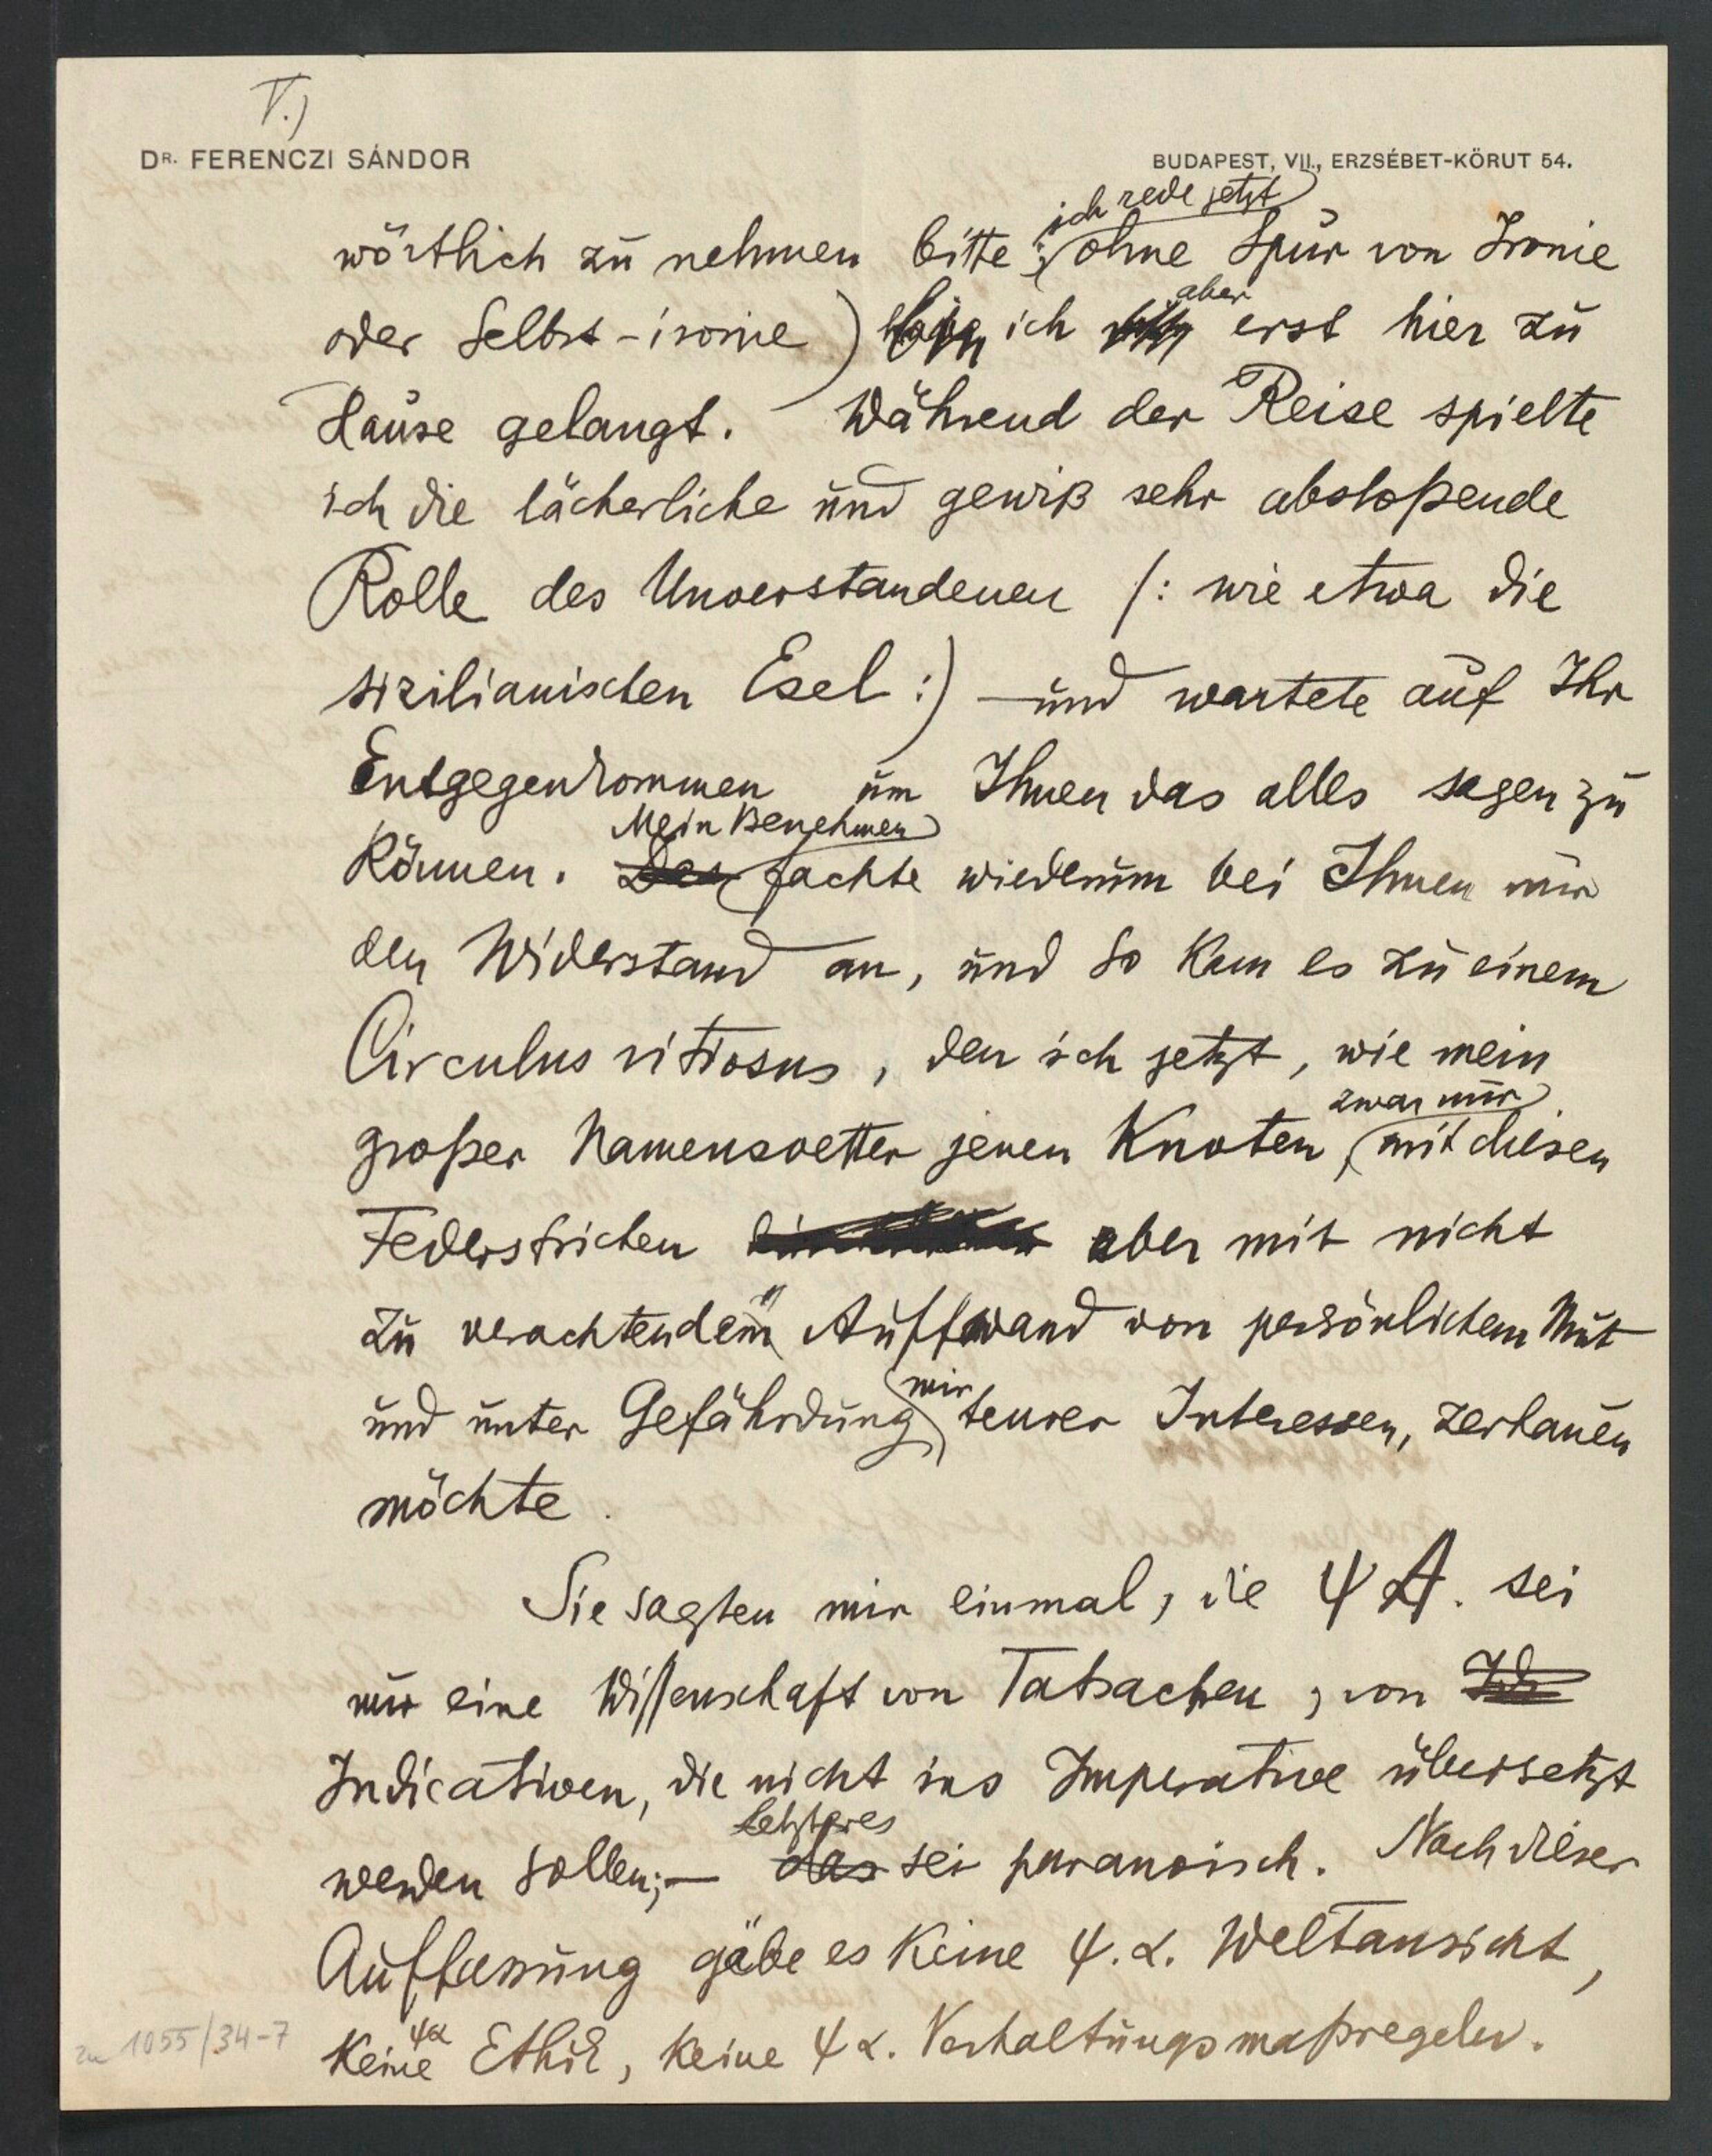 V.)
DR. FERENCZI SÁNDOR
BUDAPEST, VII., ERZSÉBET-KÖRUT 54.
ich rede jetzt
wörtlich zu nehmen bitte; ohne Spur von Ironie
aber
oder Selbst-ironie) bin ich erst hier zu
Hause gelangt. – Während der Reise spielte
ich die lächerliche und gewiß sehr abstoßende
Rolle des Unverstandenen (: wie etwa die
sizilianischen Esel :) – und wartete auf Ihr
Entgegenkommen um Ihnen das alles sagen zu
Mein Benehmen
können. Das fachte wiederum bei Ihnen nur
den Widerstand an, und so kam es zu einem
Circulus vitiosus, den ich jetzt, wie mein
zwar nur
großer Namensvetter jenen Knoten, mit diesen
Federstrichen aber mit nicht
zu verachtendem Aufwand von persönlichem Mut
mir
und unter Gefährdung teurer Interessen, zerhauen
möchte.
Sie sagten mir einmal, die ΨA. sei
nur eine Wissenschaft von Tatsachen, von
Indicativen, die nicht ins Imperative übersetzt
letzteres
werden sollen; – das sei paranoisch. Nach dieser
Auffassung gäbe es keine ψ.α. Weltansicht,
ψα
keine Ethik, keine ψα. Verhaltungsmaßregeln.
zu 1055/34-7